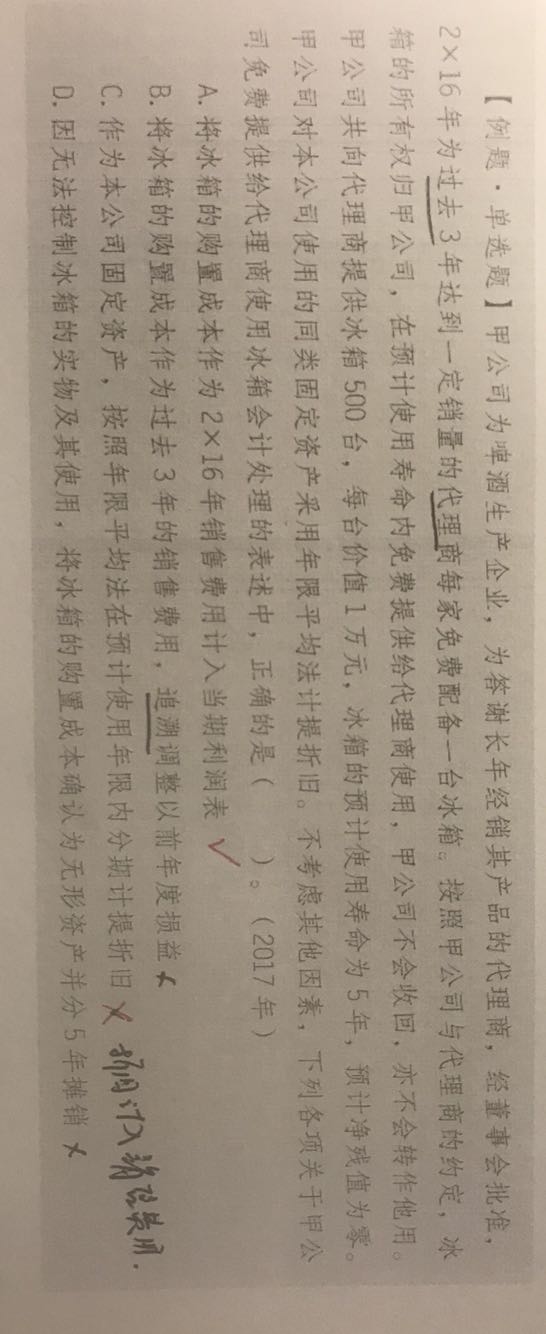 【例题·单选题】甲公司为啤酒生产企业，为答谢长年经销其产品的代理商，经董事会批准，
2×16年为过去3年达到一定销量的代理商每家免费配备一台冰箱。按照甲公司与代理商的约定，冰
箱的所有权归甲公司，在预计使用寿命内免费提供给代理商使用，甲公司不会收回，亦不会转作他用。
甲公司共向代理商提供冰箱500台，每台价值1万元，冰箱的预计使用寿命为5年，预计净残值为零。
甲公司对本公司使用的同类固定资产采用年限平均法计提折旧。不考虑其他因素，下列各项关于甲公
司免费提供给代理商使用冰箱会计处理的表述中，正确的是（ ）。（2017年）
A.将冰箱的购置成本作为2×16年销售费用计入当期利润表 ✓
B.将冰箱的购置成本作为过去3年的销售费用，追溯调整以前年度损益 ×
C.作为本公司固定资产，按照年限平均法在预计使用年限内分期计提折旧 × 折旧计入销售费用.
D.因无法控制冰箱的实物及其使用，将冰箱的购置成本确认为无形资产并分5年摊销 ×